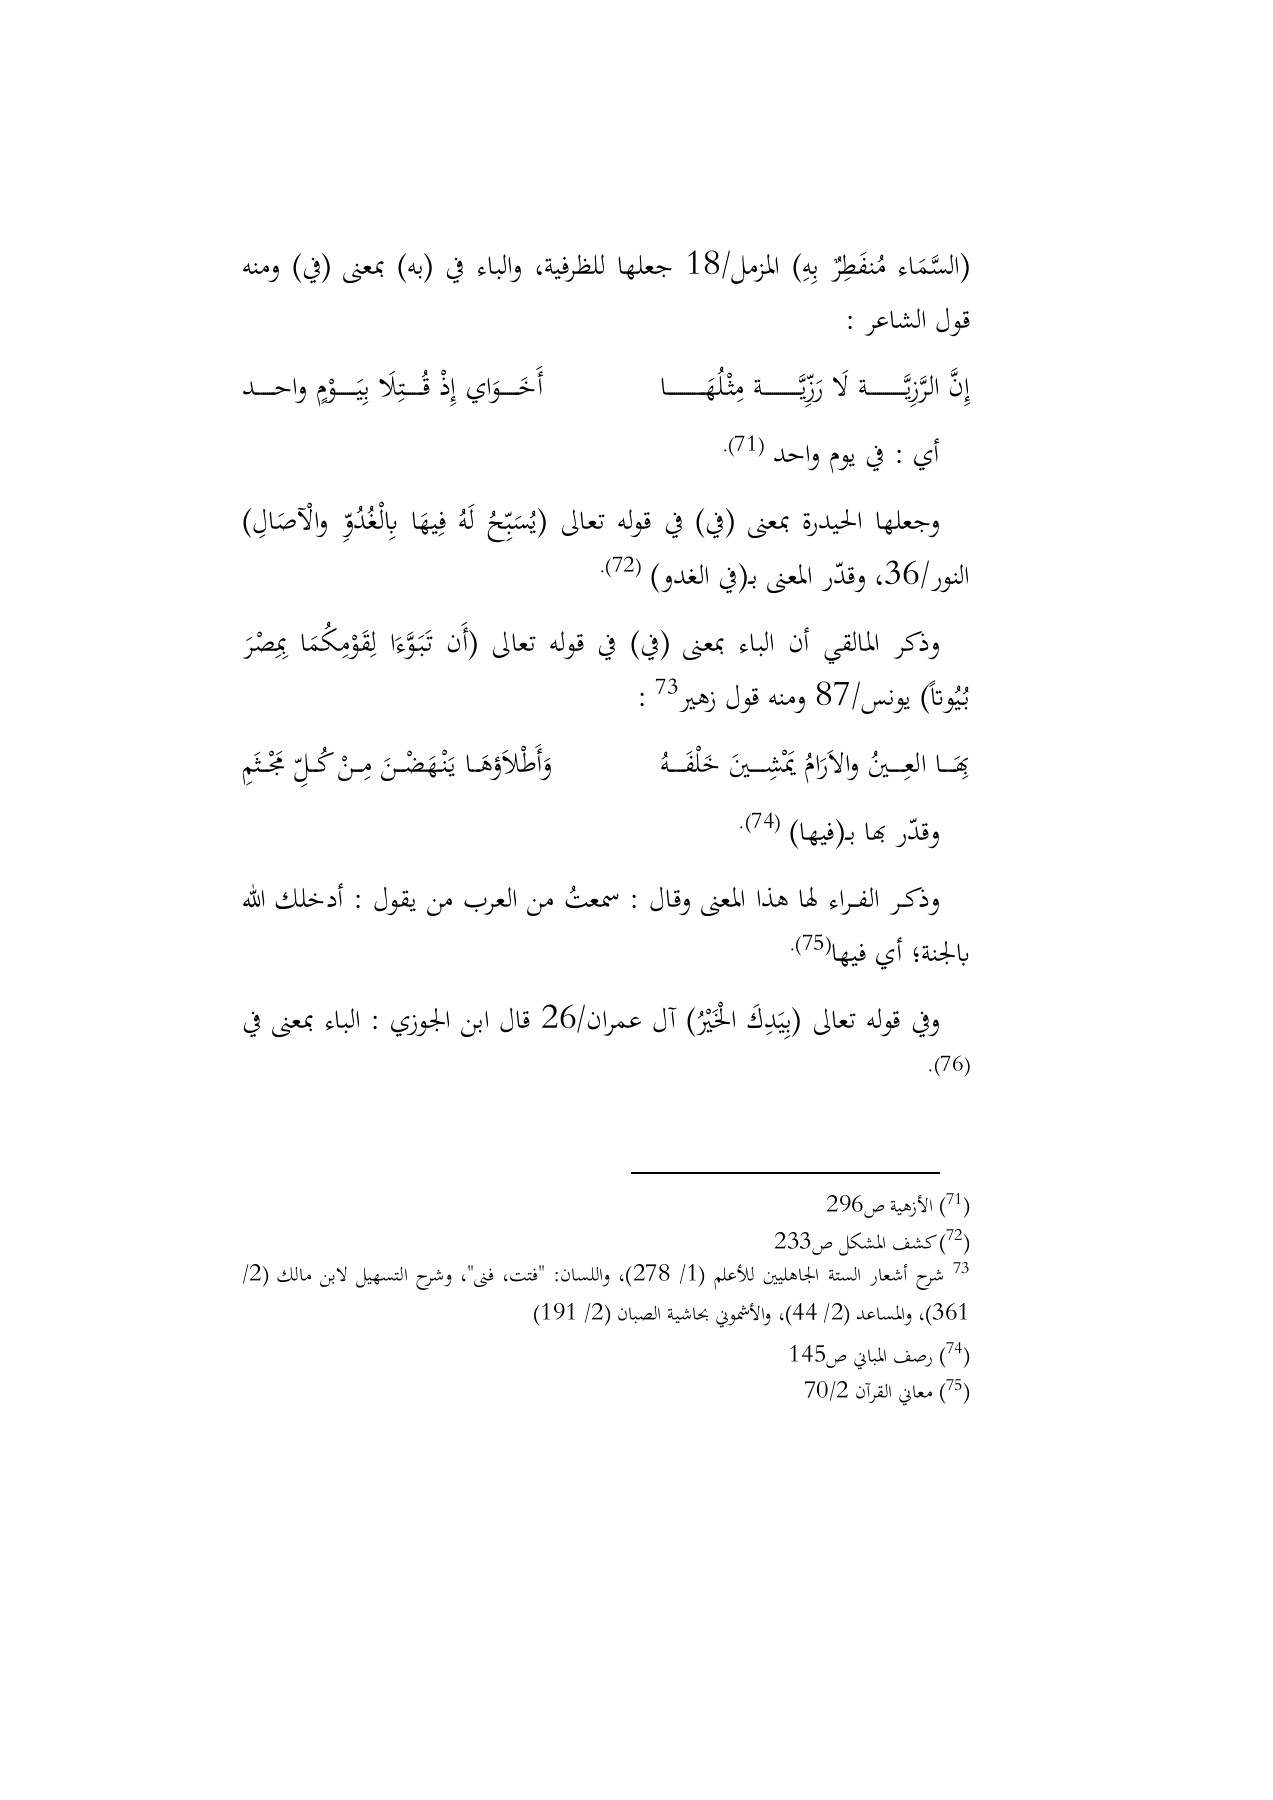 (السَّمَاء مُنفَطِرٌ بِهِ) المزمل/18 جعلها للظرفية، والباء في (به) بمعنى (في) ومنه
قول الشاعر :
إِنَّ الرَّزِيَّة لَا رَزِّيَّة مِثْلُهَا أَخَوَاي إِذْ قُتِلَا بِيَوْمٍ واحد
أي : في يوم واحد (71).
وجعلها الحيدرة بمعنى (في) في قوله تعالى (يُسَبِّحُ لَهُ فِيهَا بِالْغُدُوِّ والْآصَالِ)
النور/36، وقدّر المعنى بـ(في الغدو) (72).
وذكر المالقي أن الباء بمعنى (في) في قوله تعالى (أَن تَبَوَّءَا لِقَوْمِكُمَا بِمِصْرَ
بُيُوتاً) يونس/87 ومنه قول زهير73 :
بِهَا العِينُ والاَرَامُ يَمْشِينَ خَلْفَهُ وَأَطْلاَؤهَا يَنْهَضْنَ مِنْ كُلِّ مَجْثَمِ
وقدّر بها بـ(فيها) (74).
وذكر الفراء لها هذا المعنى وقال : سمعتُ من العرب من يقول : أدخلك الله
بالجنة؛ أي فيها(75).
وفي قوله تعالى (بِيَدِكَ الْخَيْرُ) آل عمران/26 قال ابن الجوزي : الباء بمعنى في
(76).
(71) الأزهية ص296
(72)كشف المشكل ص233
73 شرح أشعار الستة الجاهليين للأعلم (1/ 278)، واللسان: "فتت، فنى"، وشرح التسهيل لابن مالك (2/
361)، والمساعد (2/ 44)، والأشموني بحاشية الصبان (2/ 191)
(74) رصف المباني ص145
(75) معاني القرآن 70/2